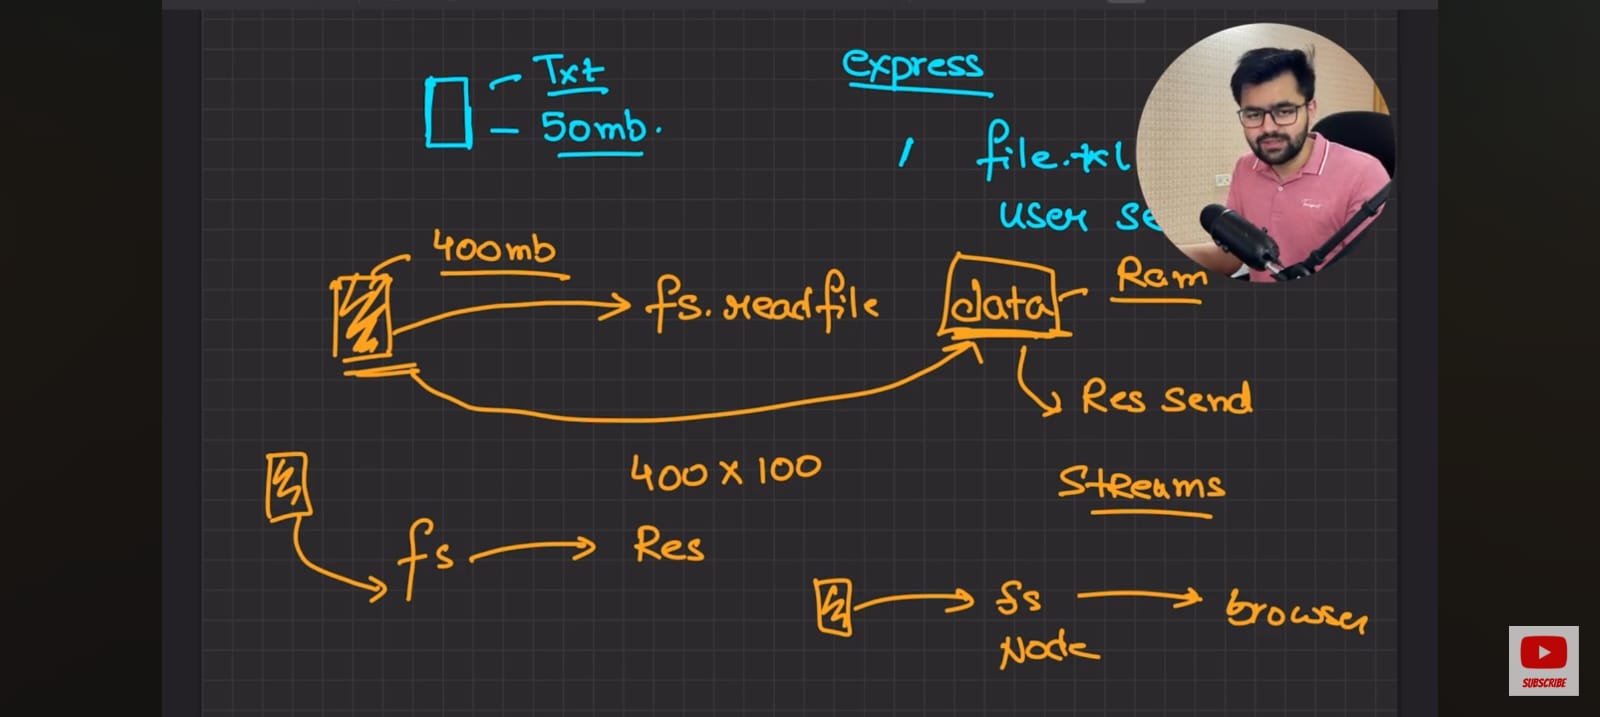 Txt
50mb.
express
/ file.txt
user se
400mb
fs.readfile
data
Ram
Res send
400 x 100
Streams
fs
Res
fs
Node
browser
SUBSCRIBE